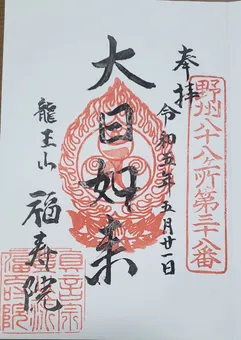 奉拝
野州八十八ヶ所第三十八番
令和五年五月廿一日
大日如来
龍王山
福寿院